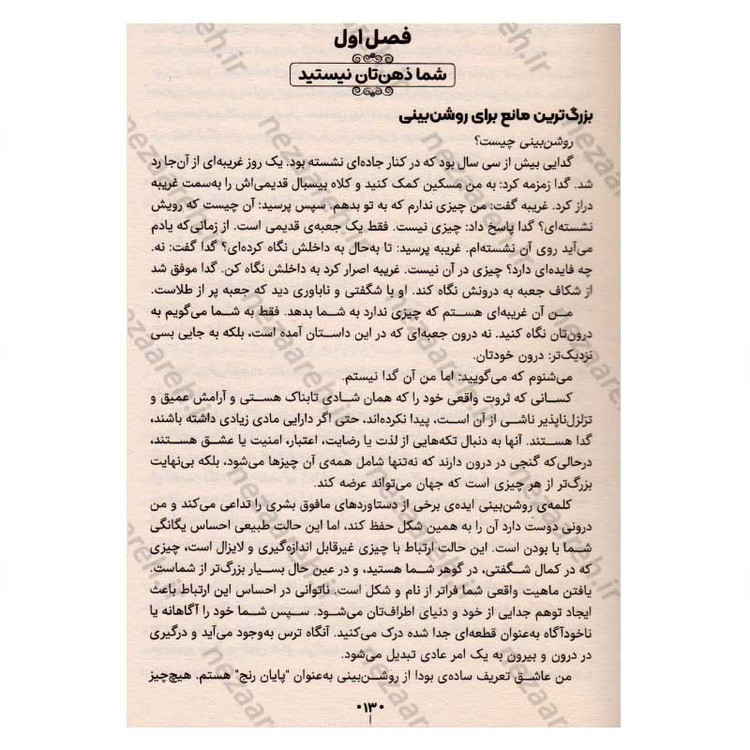 فصل اول
شما ذهن‌تان نیستید
بزرگ‌ترین مانع برای روشن‌بینی
روشن‌بینی چیست؟
گدایی بیش از سی سال بود که در کنار جاده‌ای نشسته بود. یک روز غریبه‌ای از آن‌جا رد
شد. گدا زمزمه کرد: به من مسکین کمک کنید و کلاه بیسبال قدیمی‌اش را به‌سمت غریبه
دراز کرد. غریبه گفت: من چیزی ندارم که به تو بدهم. سپس پرسید: آن چیست که رویش
نشسته‌ای؟ گدا پاسخ داد: چیزی نیست. فقط یک جعبه‌ی قدیمی است. از زمانی‌که یادم
می‌آید روی آن نشسته‌ام. غریبه پرسید: تا به‌حال به داخلش نگاه کرده‌ای؟ گدا گفت: نه.
چه فایده‌ای دارد؟ چیزی در آن نیست. غریبه اصرار کرد به داخلش نگاه کن. گدا موفق شد
از شکاف جعبه به درونش نگاه کند. او با شگفتی و ناباوری دید که جعبه پر از طلاست.
من آن غریبه‌ای هستم که چیزی ندارد به شما بدهد. فقط به شما می‌گویم به
درون‌تان نگاه کنید. نه درون جعبه‌ای که در این داستان آمده است، بلکه به جایی بسی
نزدیک‌تر: درون خودتان.
می‌شنوم که می‌گویید: اما من آن گدا نیستم.
کسانی که ثروت واقعی خود را که همان شادی تابناک هستی و آرامش عمیق و
تزلزل‌ناپذیر ناشی از آن است، پیدا نکرده‌اند، حتی اگر دارایی مادی زیادی داشته باشند،
گدا هستند. آنها به دنبال تکه‌هایی از لذت یا رضایت، اعتبار، امنیت یا عشق هستند،
درحالی‌که گنجی در درون دارند که نه‌تنها شامل همه‌ی آن چیزها می‌شود، بلکه بی‌نهایت
بزرگ‌تر از هر چیزی است که جهان می‌تواند عرضه کند.
کلمه‌ی روشن‌بینی ایده‌ی برخی از دستاوردهای مافوق بشری را تداعی می‌کند و من
درونی دوست دارد آن را به همین شکل حفظ کند، اما این حالت طبیعی احساس یگانگی
شما با بودن است. این حالت ارتباط با چیزی غیرقابل اندازه‌گیری و لایزال است، چیزی
که در کمال شگفتی، در گوهر شما هستید، و در عین حال بسیار بزرگ‌تر از شماست.
یافتن ماهیت واقعی شما فراتر از نام و شکل است. ناتوانی در احساس این ارتباط باعث
ایجاد توهم جدایی از خود و دنیای اطراف‌تان می‌شود. سپس شما خود را آگاهانه یا
ناخودآگاه به‌عنوان قطعه‌ای جدا شده درک می‌کنید. آنگاه ترس به‌وجود می‌آید و درگیری
در درون و بیرون به یک امر عادی تبدیل می‌شود.
من عاشق تعریف ساده‌ی بودا از روشن‌بینی به‌عنوان "پایان رنج" هستم. هیچ‌چیز
۱۳
nezaareh.ir